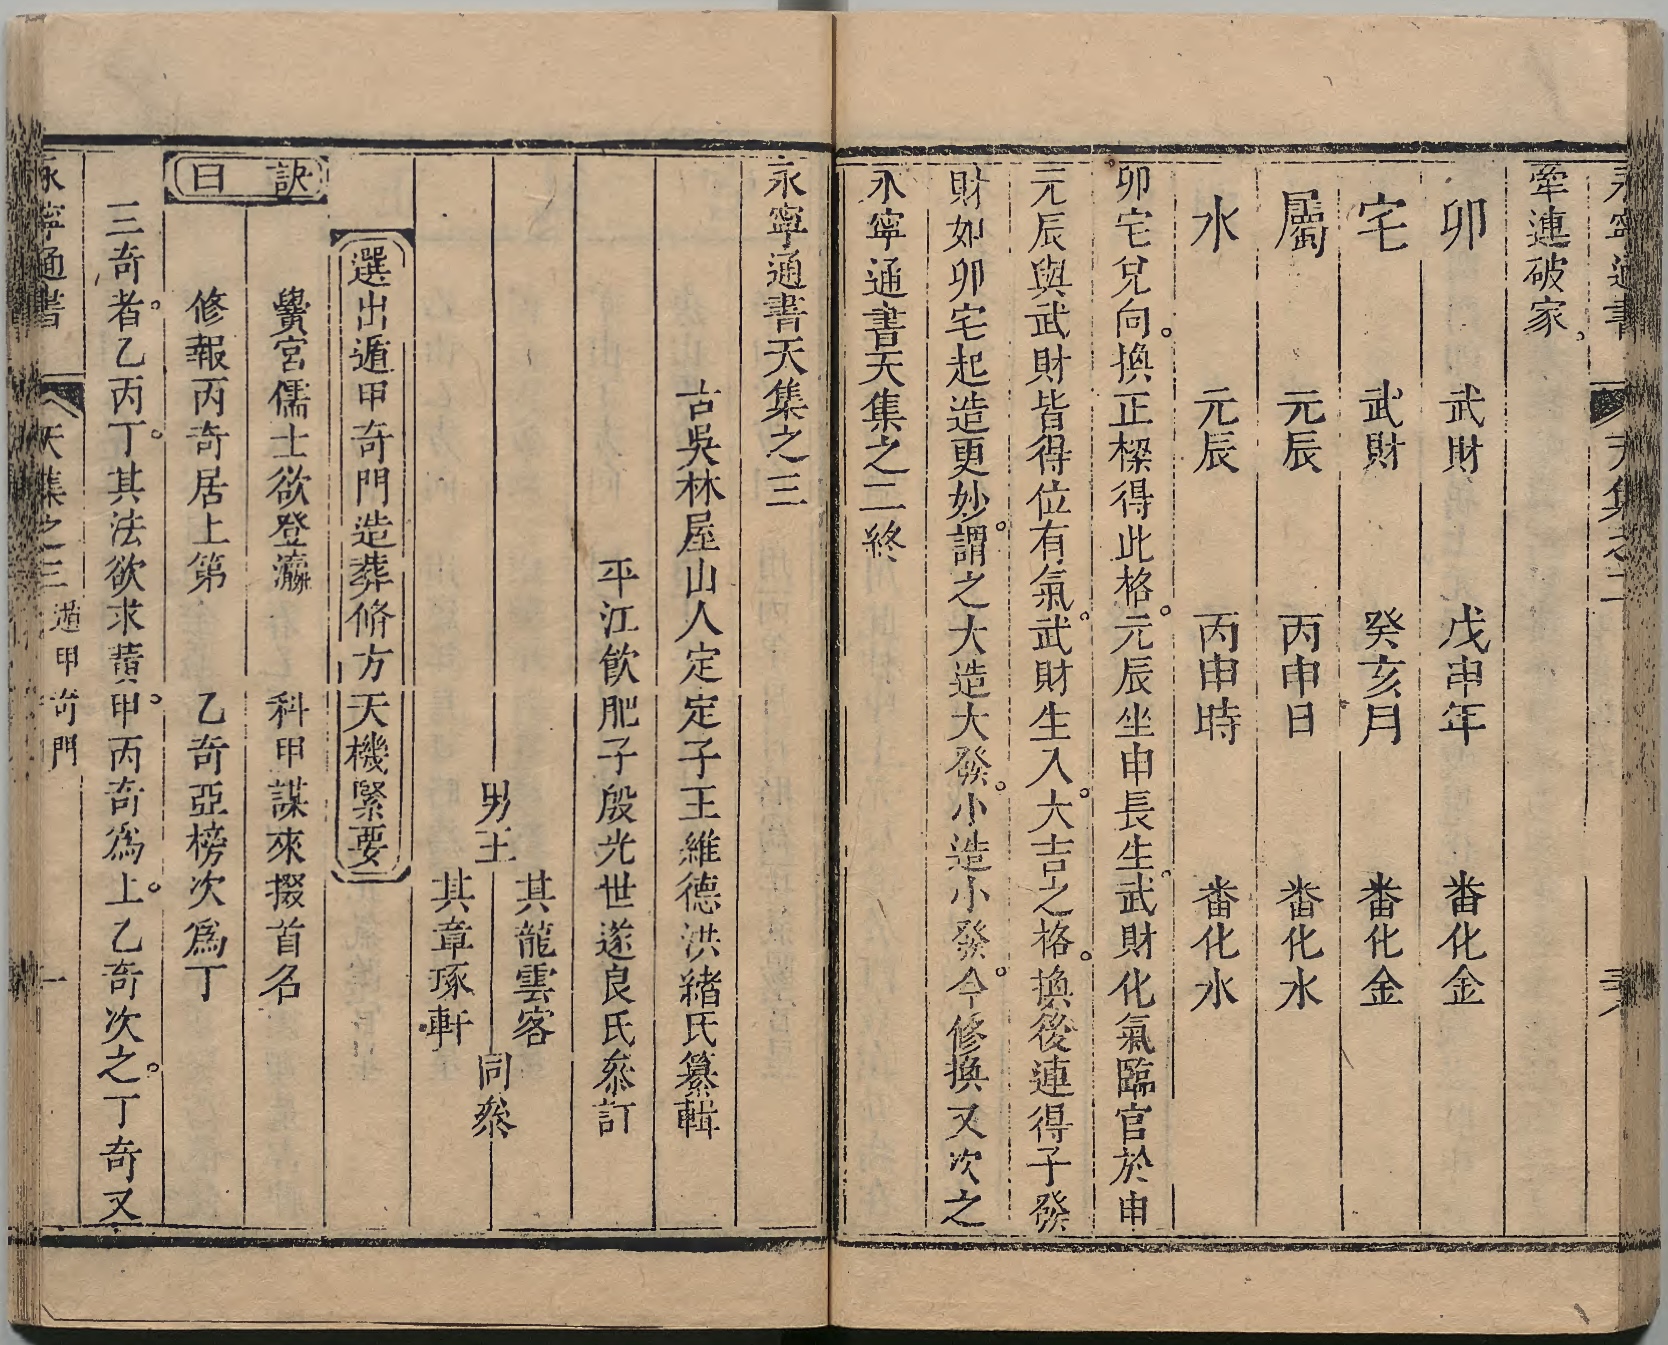 永寧通書 天集之二
牽連破家
卯 武財 戊申年 畨化金
宅 武財 癸亥月 畨化金
屬 元辰 丙申日 畨化水
水 元辰 丙申時 畨化水
卯宅兌向。換正樑得此格。元辰坐申長生。武財化氣臨官於申
元辰與武財皆得位有氣。武財生入。大吉之格。換後連得子發
財如卯宅起造更妙。謂之大造大發。小造小發。今修換又次之
永寧通書天集之二終
永寧通書天集之三
古吳林屋山人定定子王維德洪緒氏纂輯
平江飲肥子殷光世遂良氏叅訂
男王 其龍雲客 其章琢軒 同叅
選出遁甲奇門造葬修方天機緊要
訣曰
黌宮儒士欲登瀛 科甲謀來掇首名
修報丙奇居上第 乙奇亞榜次爲丁
三奇者。乙丙丁。其法欲求黃甲。丙奇爲上。乙奇次之。丁奇又
永寧通書 天集之三 遁甲奇門 一